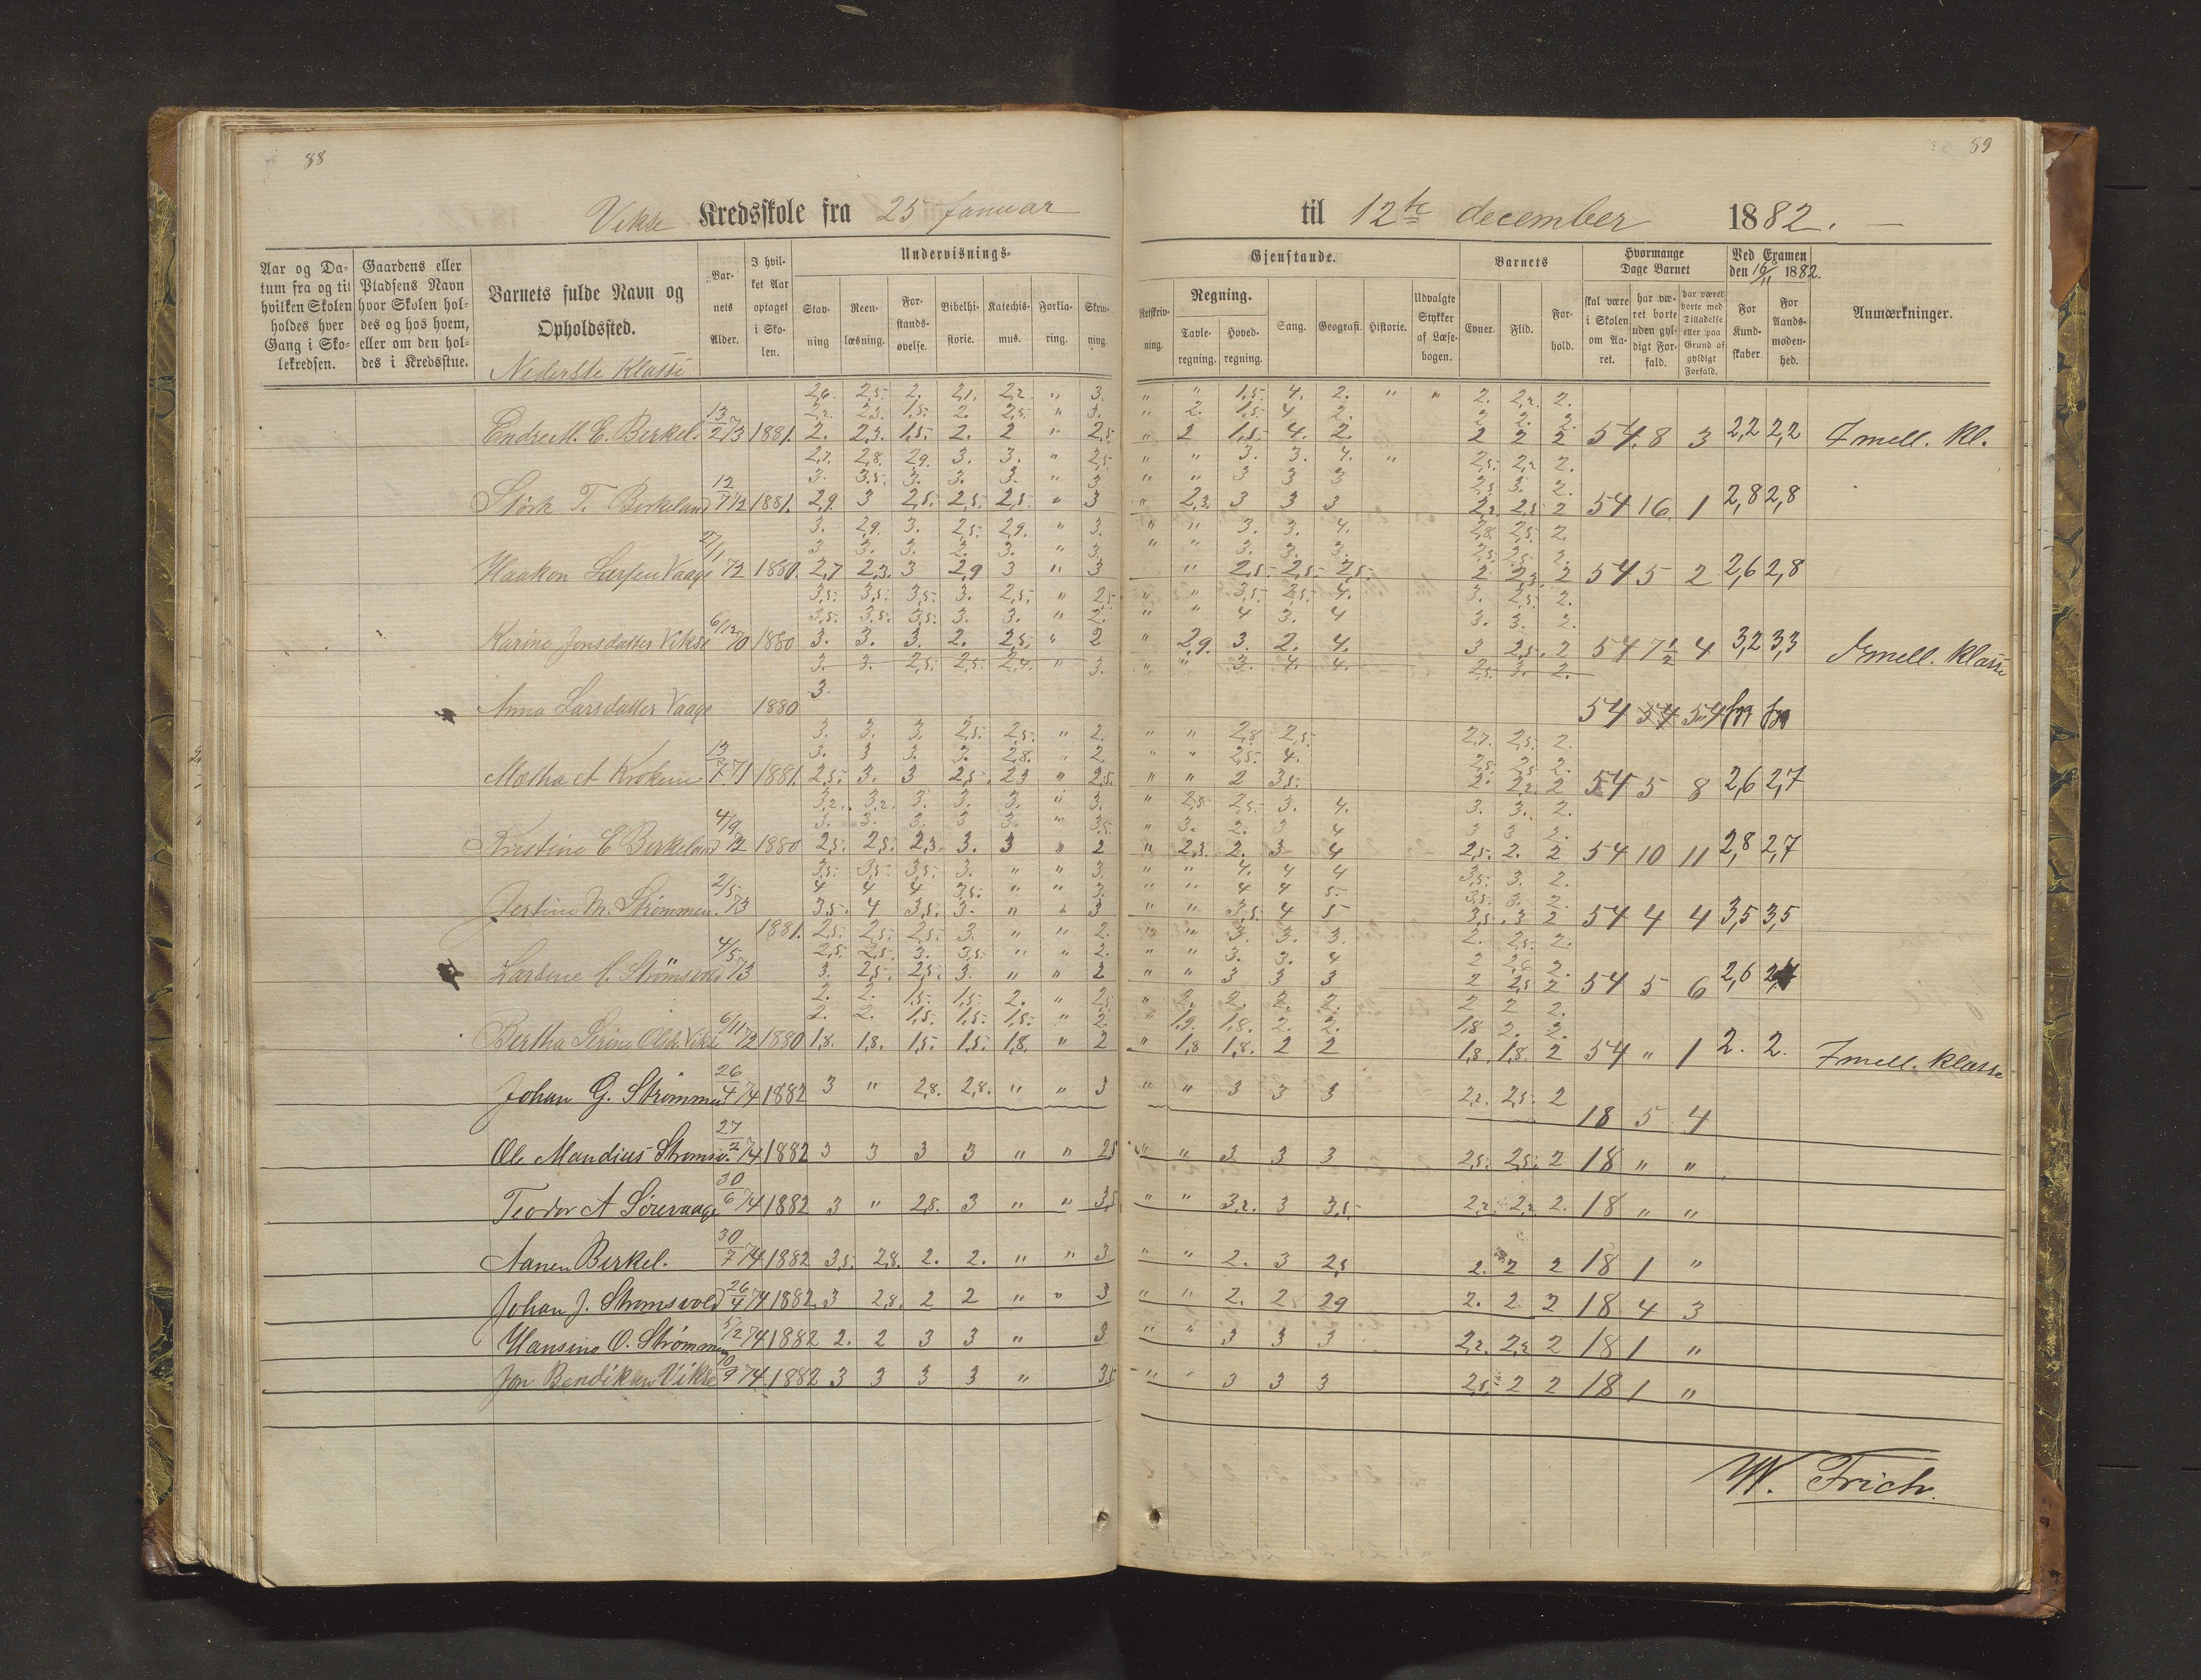 88
Vikse Kredsskole fra 25 Januar
Aar og Da-
tum fra og til
hvilken Skolen
holdes hver
Gang i Sko-
lekredsen.
Gaardens eller
Pladsens Navn
hvor Skolen hol-
des og hos hvem,
eller om den hol-
des i Kredsstue.
Barnets fulde Navn og
Opholdssted.
Nederste Klasse
Bar-
nets
Alder.
I hvil-
ket Aar
optaget
i Sko-
len.
Undervisnings-
Stav-
ning
Reen-
læsning.
For-
stands-
øvelse.
Bibelhi-
storie.
Katechis-
mus.
Forkla-
ring.
Skriv-
ning.
2,6. 2,5. 2. 2,1. 2,2. " 3.
2,2. 2,3. 1,5. 2. 2,5. " 3.
Endre M. E. Berkel. 13/2 73 1881. 2. 2,3. 1,5. 2. 2 " 2,5
2,7. 2,8. 2,9. 3. 3. " 2,5.
3. 3,5. 3. 3. 3. " 3
Störk T. Birkeland 12/7 72 1881. 2,9. 3 2,5. 2,5. 2,5. " 3
3. 2,9. 3. 2,5. 2,9. " 3.
3 3. 3. 2. 3. " 3.
Haakon Larsen Vaage 72 1880. 2,7 2,3. 3 2,9 3 " 3
3,5. 3,5. 3,5. 3. 2,5. " 2,5.
3,5. 3,5. 3,5. 3. 3. " 2.
Karine Jonsdatter Vikse 6/12 70 1880 3. 3. 3. 2. 2,5. " 2
3. 3. 2,5. 2,5. 2,4. " 3.
Anna Larsdatter Vaage 1880 3.
3. 3. 3. 2,5. 2,5. " 2.
3. 3 3. 3. 2,8. " 2.
Mætha A Krokene 13/7 71 1881. 2,5. 3. 3 2,5. 2,3 " 2,5.
3,2. 3,2. 3. 3. 3. " 3.
3. 3. 3. 3 3. " 3,5.
Kristine E Berkeland 4/9 72 1880 2,5. 2,5. 2,3. 3. 3 " 2
3,5. 3,5. 3,5. 3. " " 3.
4 4 4 3,5. " " 3.
Jertine M. Strømmen. 2/5 73 3,5. 4 3,5. 3. " " 3
1881. 2,5. 2,5. 2,5. 3. " " 2.
2,5. 2,5. 3. 3,5. " " 2.
Larsine J. Strömsvold 4/5 73 3. 2,5. 2,5. 3. " " 2
2. 2. 1,5. 1,5. 2. " 2,5
2. 2. 1,5. 1,5. 1,5. " 2.
Bertha Serine Olsd. Vikse 6/11 72 1880 1,8. 1,8. 1,5. 1,5. 1,8. " 2
Johan G. Strömmen 26/4 74 1882 3 " 2,8. 2,8. " " 3
Ole Mandius Stromsv. 27/2 74 1882 3 3 3 3 " " 2,5
Teodor A Sörevaage 30/6 74 1882 3 " 2,8. 3 " " 3,5
Aanen Berkel. 30/7 74 1882 3,5. 2,8. 2. 2. " " 3
Johan J. Stromsvold 26/4 74 1882. 3 2,8. 2 2 " " 3
Hansine O. Strömmen 5/2 74 1882 2. 2 3 3 " 3
Jon Bendiksen Vikse 10/9 74 1882 3 3 3 3 " 3,5
89
til 12te december 1882.
Gjenstande.
Retskriv-
ning.
Regning.
Tavle-
regning.
Hoved-
regning.
Sang.
Geografi.
Historie.
Udvalgte
Stykker
af Læse-
bogen.
Barnets
Evner.
Flid.
For-
hold.
Hvormange
Dage Barnet
skal være
i Skolen
om Aa-
ret.
har væ-
ret borte
uden gyl-
digt For-
fald.
har været
borte med
Tilladelse
eller paa
Grund af
gyldigt
Forfald.
Ved Examen
den 16/11 1882.
For
Kund-
skaber.
For
Aands-
moden-
hed.
Anmærkninger.
" " 1,5. 4. 2. " " 2. 2,2. 2.
" 2. 1,5. 4 2. 2 2. 2.
" 2 1,5. 4. 2. 2 2 2 54 8 3 2,2 2,2 I mell. Kl.
" " 3. 3. 4. " 2,5. 2,2 2.
" " 3 3 3 2,5 3. 2.
" 2,3. 3 3 3 2,2 2,5 2 54 16 1 2,8 2,8
" " 3. 3. 4. 2,8. 2,5. 2.
" " 3. 3. 3. 2,5. 2,5. 2.
" 2,5. 2,5. 2,5. 2 2,3 2 54 5 2 2,6 2,8
" " 3,5. 2,5. 4. 3. 2,5. 2.
" " 4 3. 4 3. 3. 2.
" 2,9. 3. 2. 4. 3 2,5. 2 54 7 1/2 4 3,2 3,3 I mell. Klasse
" " 3. 4. 4. 2,5. 3. 2.
54 54 54
" " 2,8 2,5. 2,7. 2,5. 2.
" " 2,5. 4. 2,5. 2,5 2.
" " 2 3,5. 2. 2,2. 2 54 5 8 2,6 2,7
" 2,5 2,5. 3. 4. 3. 3. 2.
" 3. 2. 3 4 3 3 2.
" 2,3. 2. 3 4 2,5. 2. 2 54 10 11 2,8 2,7
" " 4. 4 4 3,5. 3. 2.
" " 4 4 5. 3,5. 3. 2.
" " 3,5. 4 5 3,5. 3 2 54 4 4 3,5 3,5
" " 3. 3. 3. 2. 2,5. 2.
" " 3. 3. 4 2 2,6 2.
" " 3 3 3 2 2,5 2 54 5 6 2,6
" 2. 2. 2. 2. 2 2 2.
" 1,9. 1,8. 2. 2. 1,8 2. 2.
" 1,8 1,8. 2 2 1,8. 1,8. 2 54 " 1 2. 2. I mell. Klasse
" " 3 3 3 2,2. 2,5. 2 18 5 4
" " 3 3 3 2,5. 2,5. 2 18 " "
" " 3,2. 3 3,5. 2,2. 2,2. 2. 18 " "
" " 2. 3 2,5 2. 2 2 18 1 "
" " 2. 2 2,9 2. 2 2 18 4 3
" " 3 3 3 2,2. 2,2 2 18 1 "
" " 3 3 3 2,5. 2 2 18 1 "
W. Frich.